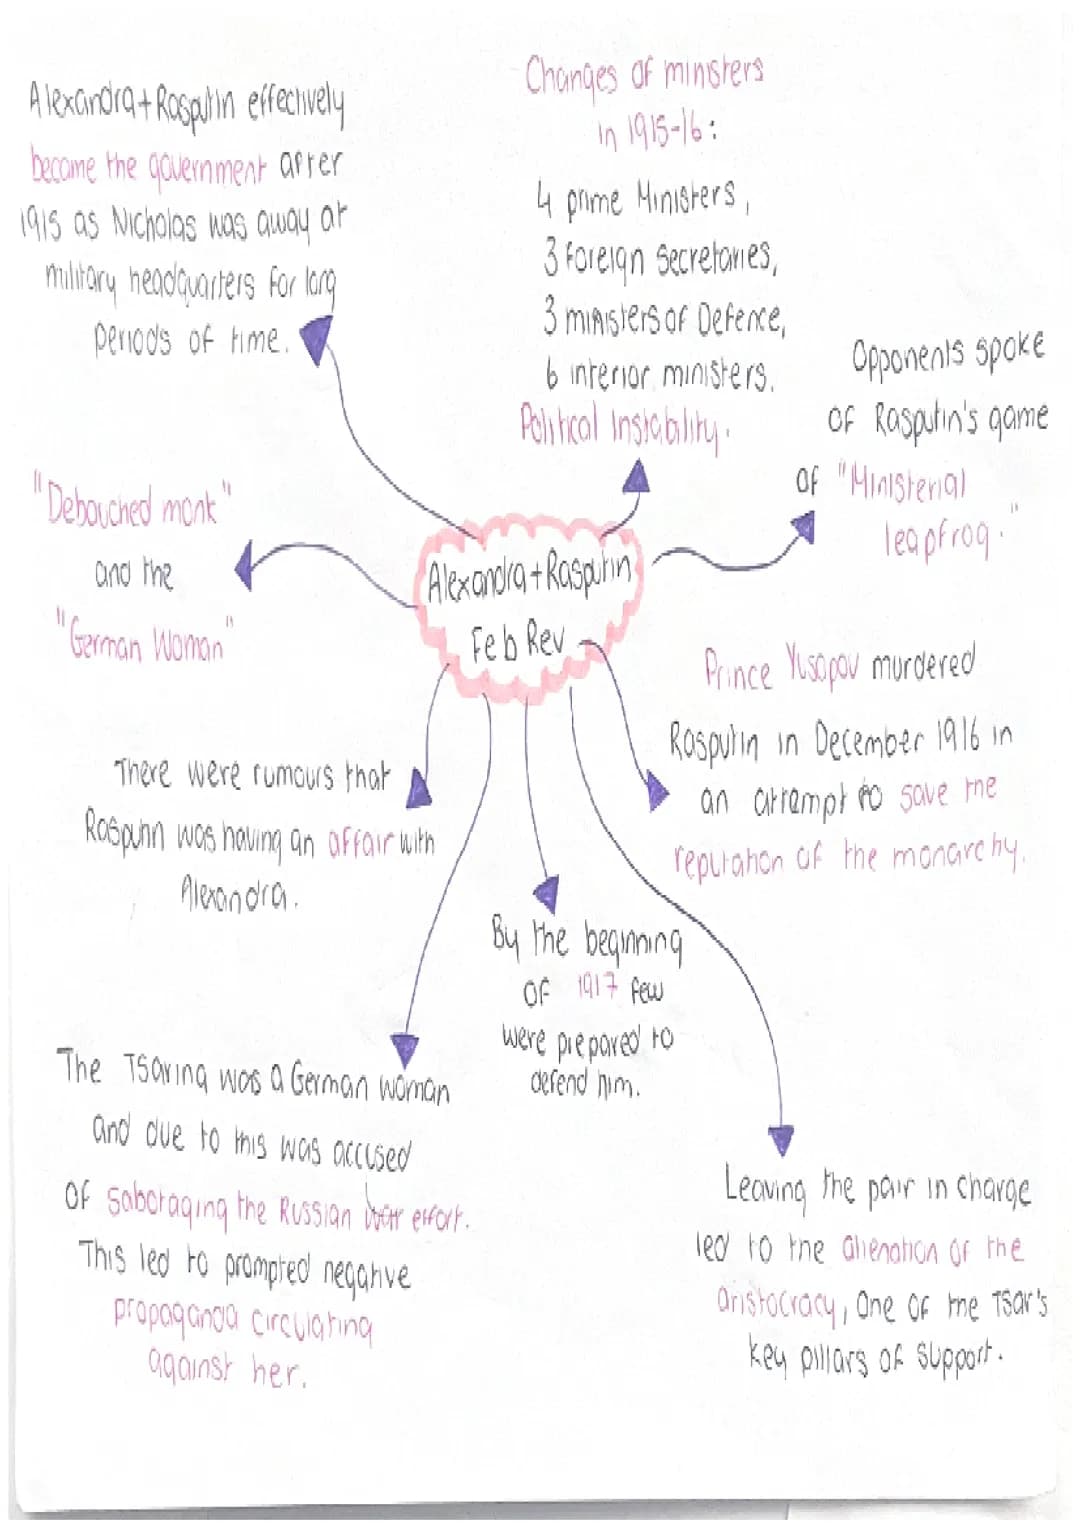 Alexandra + Rasputin effectively
became the government after
1915 as Nicholas was away at
military headquarters for long
periods of time.
Changes of ministers
in 1915-16:
4 prime Ministers,
3 foreign secretaries,
3 ministers of Defence,
6 interior ministers.
Political Instability.
Opponents spoke
of Rasputin's game
of "Ministerial
leapfrog."
"Debouched monk"
and the
"German Woman"
Alexandra + Rasputin
Feb Rev
Prince Yusopov murdered
Rasputin in December 1916 in
an attempt to save the
reputation of the monarchy.
There were rumours that
Rasputin was having an affair with
Alexandra.
By the beginning
of 1917 few
were prepared to
defend him.
The Tsarina was a German woman
and due to this was accused
of sabotaging the Russian war effort.
This led to prompted negative
propaganda circulating
against her.
Leaving the pair in charge
led to the alienation of the
aristocracy, one of the Tsar's
key pillars of support.